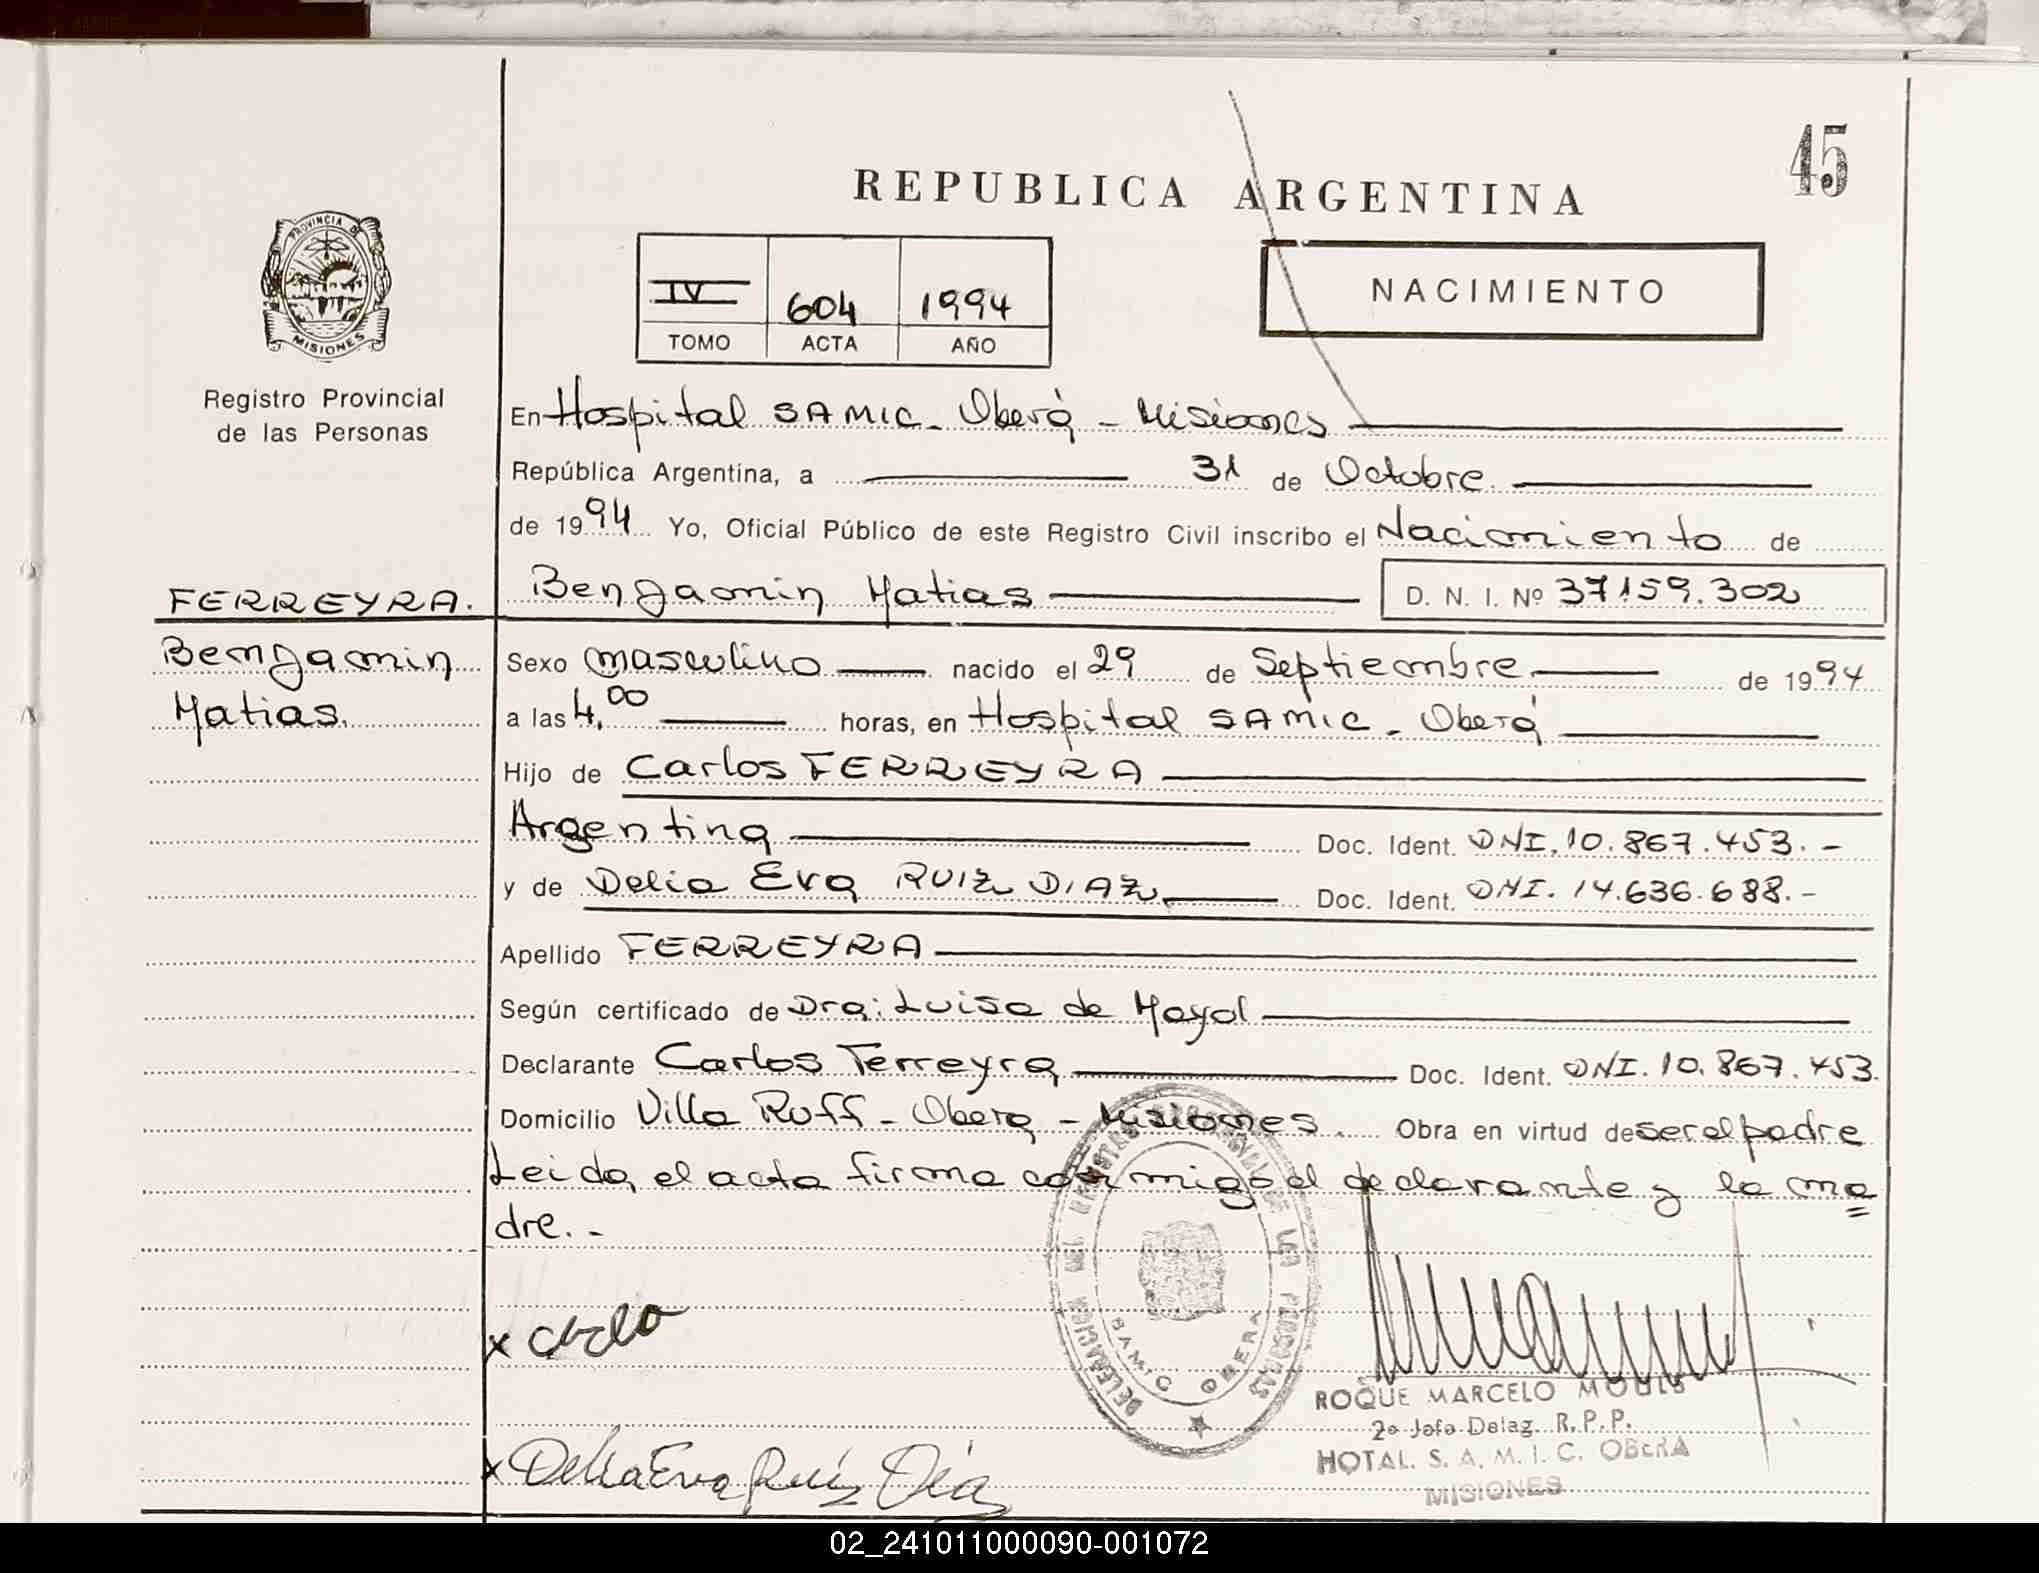 45
REPUBLICA ARGENTINA
PROVINCIA DE
MISIONES
Registro Provincial
de las Personas
IV 604 1994
TOMO ACTA AÑO
NACIMIENTO
En Hospital SAMIC - Oberá - Misiones
República Argentina, a 31 de Octubre
de 1994 Yo, Oficial Público de este Registro Civil inscribo el Nacimiento de
FERREYRA. Benjamin Matias D. N. I. Nº 37.159.302
Benjamin Sexo masculino nacido el 29 de Septiembre de 1994
Matias. a las 4,00 horas, en Hospital SAMIC - Oberá
Hijo de Carlos FERREYRA
Argentina Doc. Ident. DNI. 10.867.453.-
y de Delia Eva RUIZ DIAZ Doc. Ident. DNI. 14.636.688.-
Apellido FERREYRA
Según certificado de Dra: Luisa de Mayol
Declarante Carlos Ferreyra Doc. Ident. DNI. 10.867.453.
Domicilio Villa Ruff - Obera - Misiones. Obra en virtud de ser el padre
Leida el acta firma conmigo el declarante y la ma
dre.-
DELEGACION DEL REGISTRO PROVINCIAL DE LAS PERSONAS
SAMIC OBERA
x
ROQUE MARCELO
2º Jefe Delag. R.P.P.
HOTAL. S. A. M. I. C. OBERA
MISIONES
x Delia Eva Ruiz Diaz
02_241011000090-001072